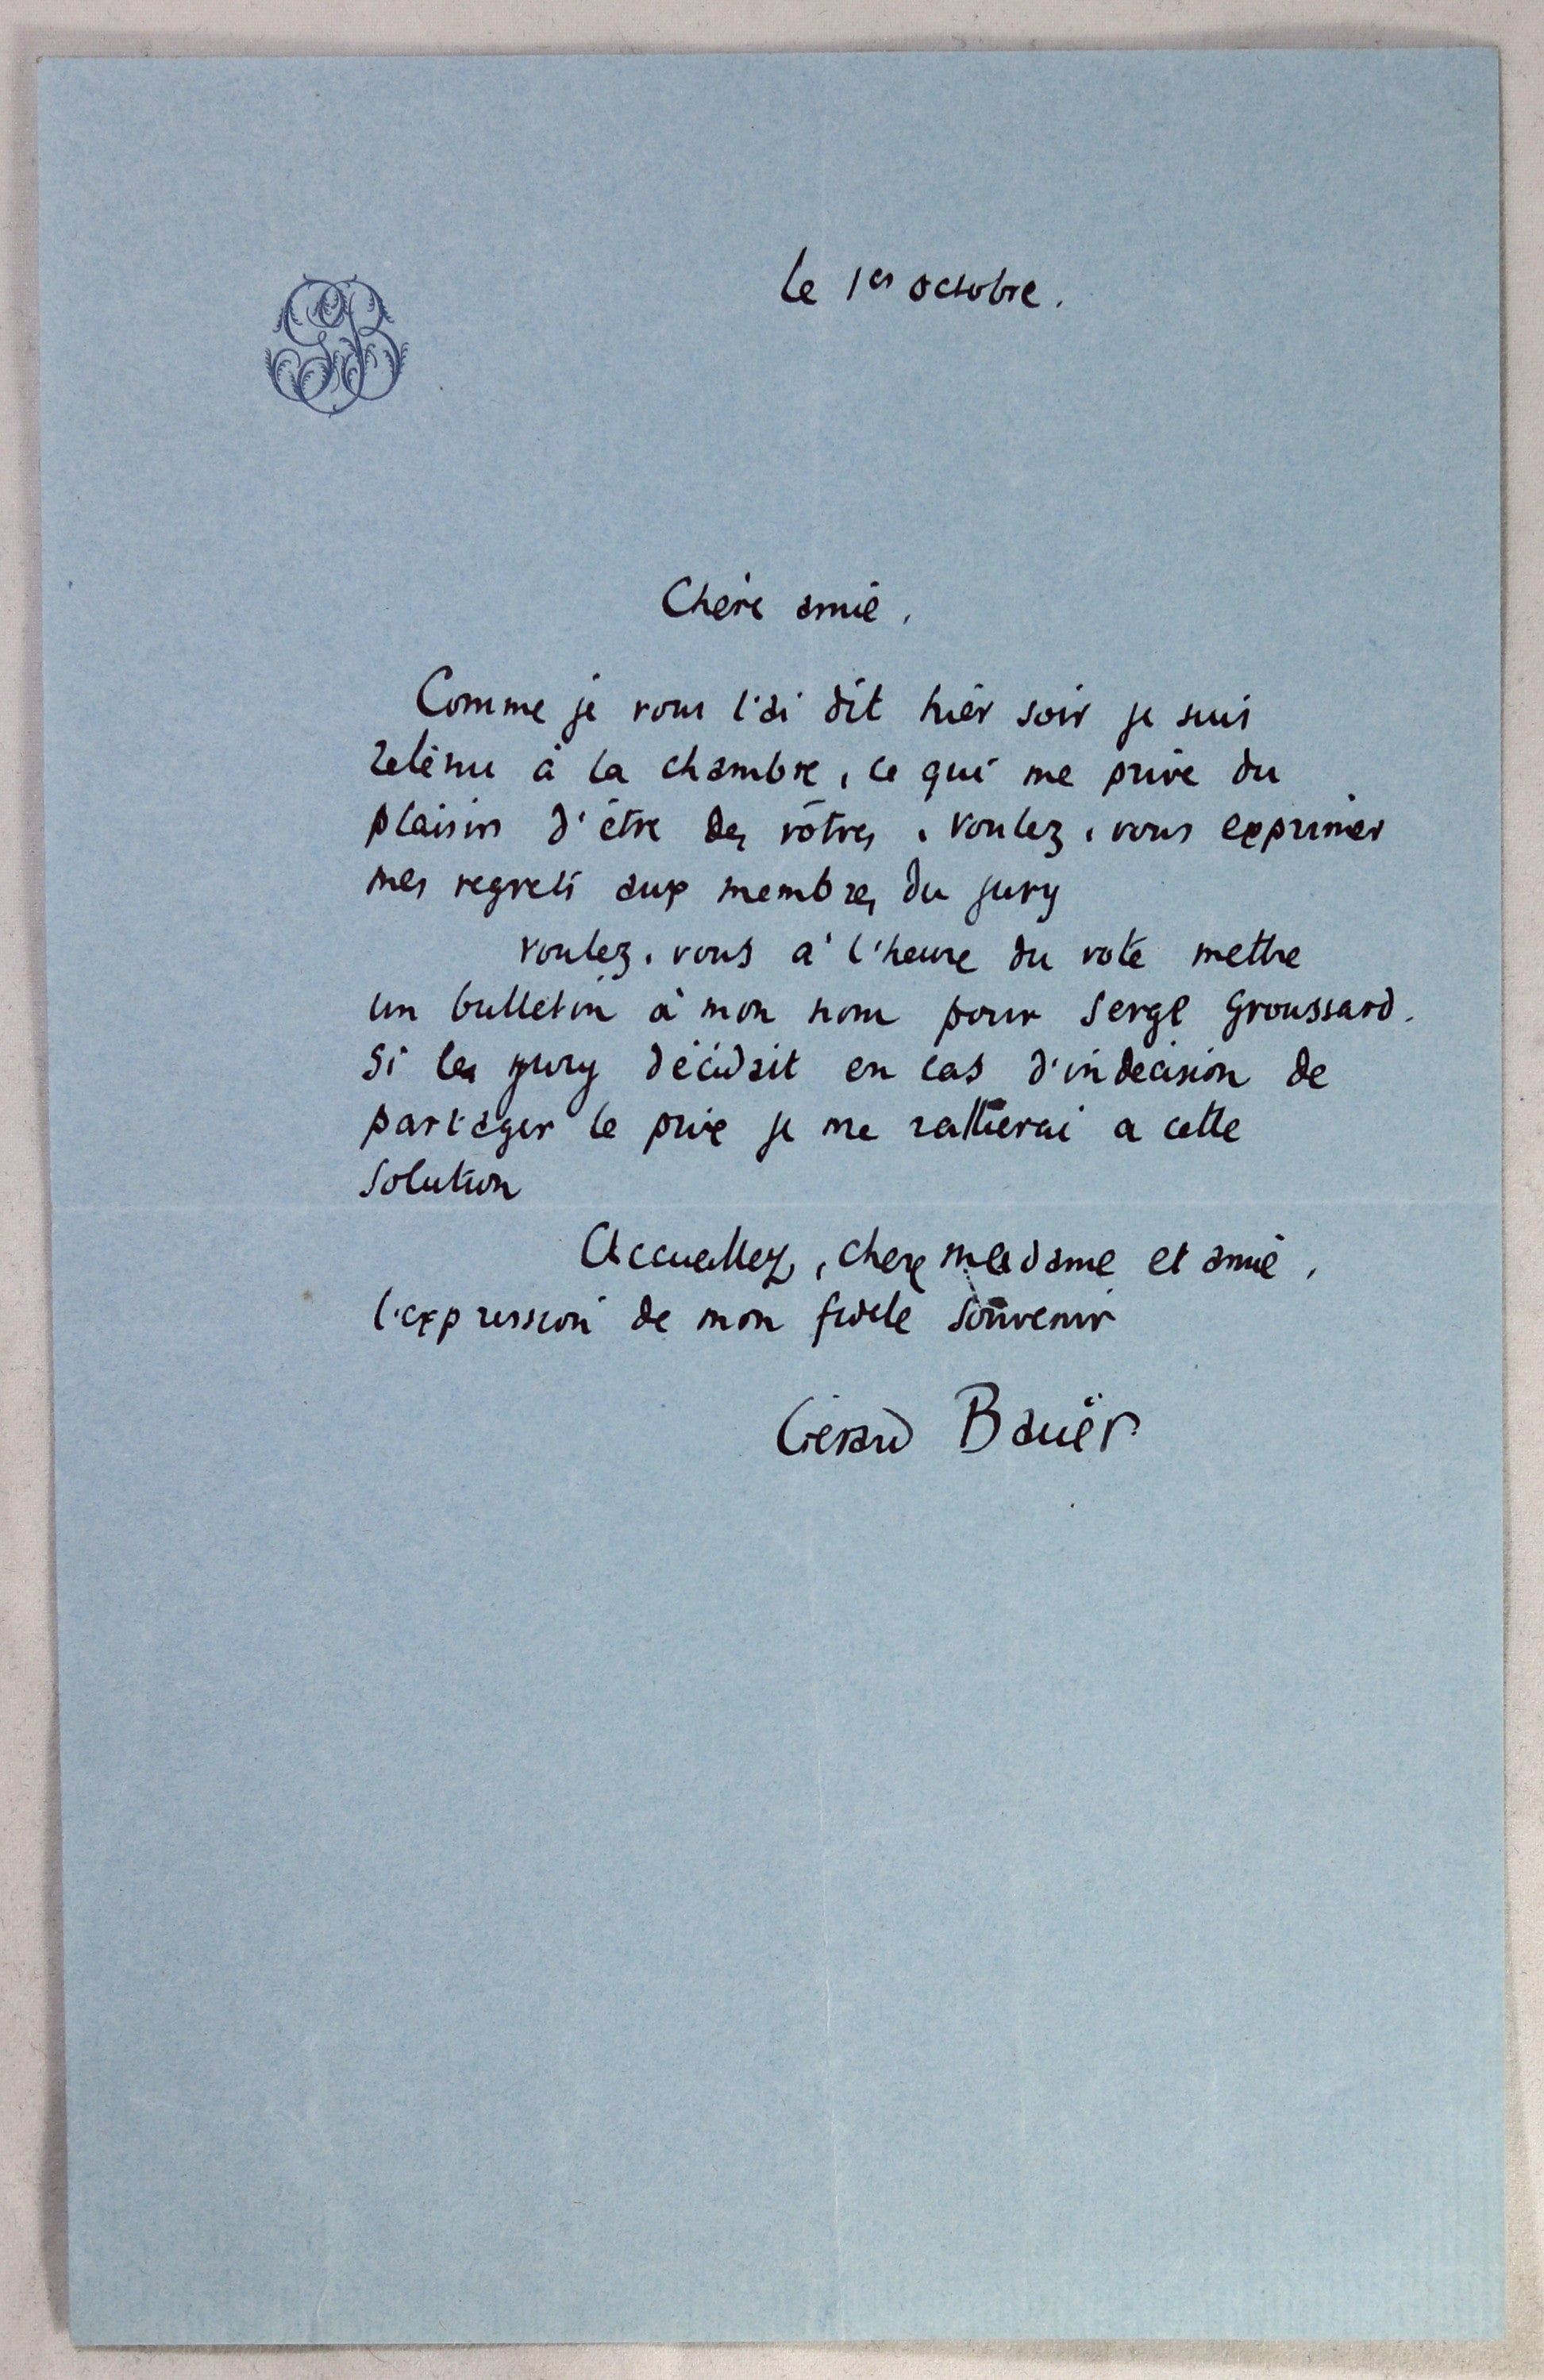 GB
le 1er octobre.
Chère amie,
Comme je vous l'ai dit hier soir je suis
retenu à la chambre, ce qui me prive du
plaisir d'être des vôtres. Voulez-vous exprimer
mes regrets aux membres du jury
voulez-vous à l'heure du vote mettre
un bulletin à mon nom pour Serge Groussard.
Si le jury décidait en cas d'indécision de
partager le prix je me rallierai a cette
solution
Accueillez, chère madame et amie,
l'expression de mon fidèle souvenir
Gérard Bauër